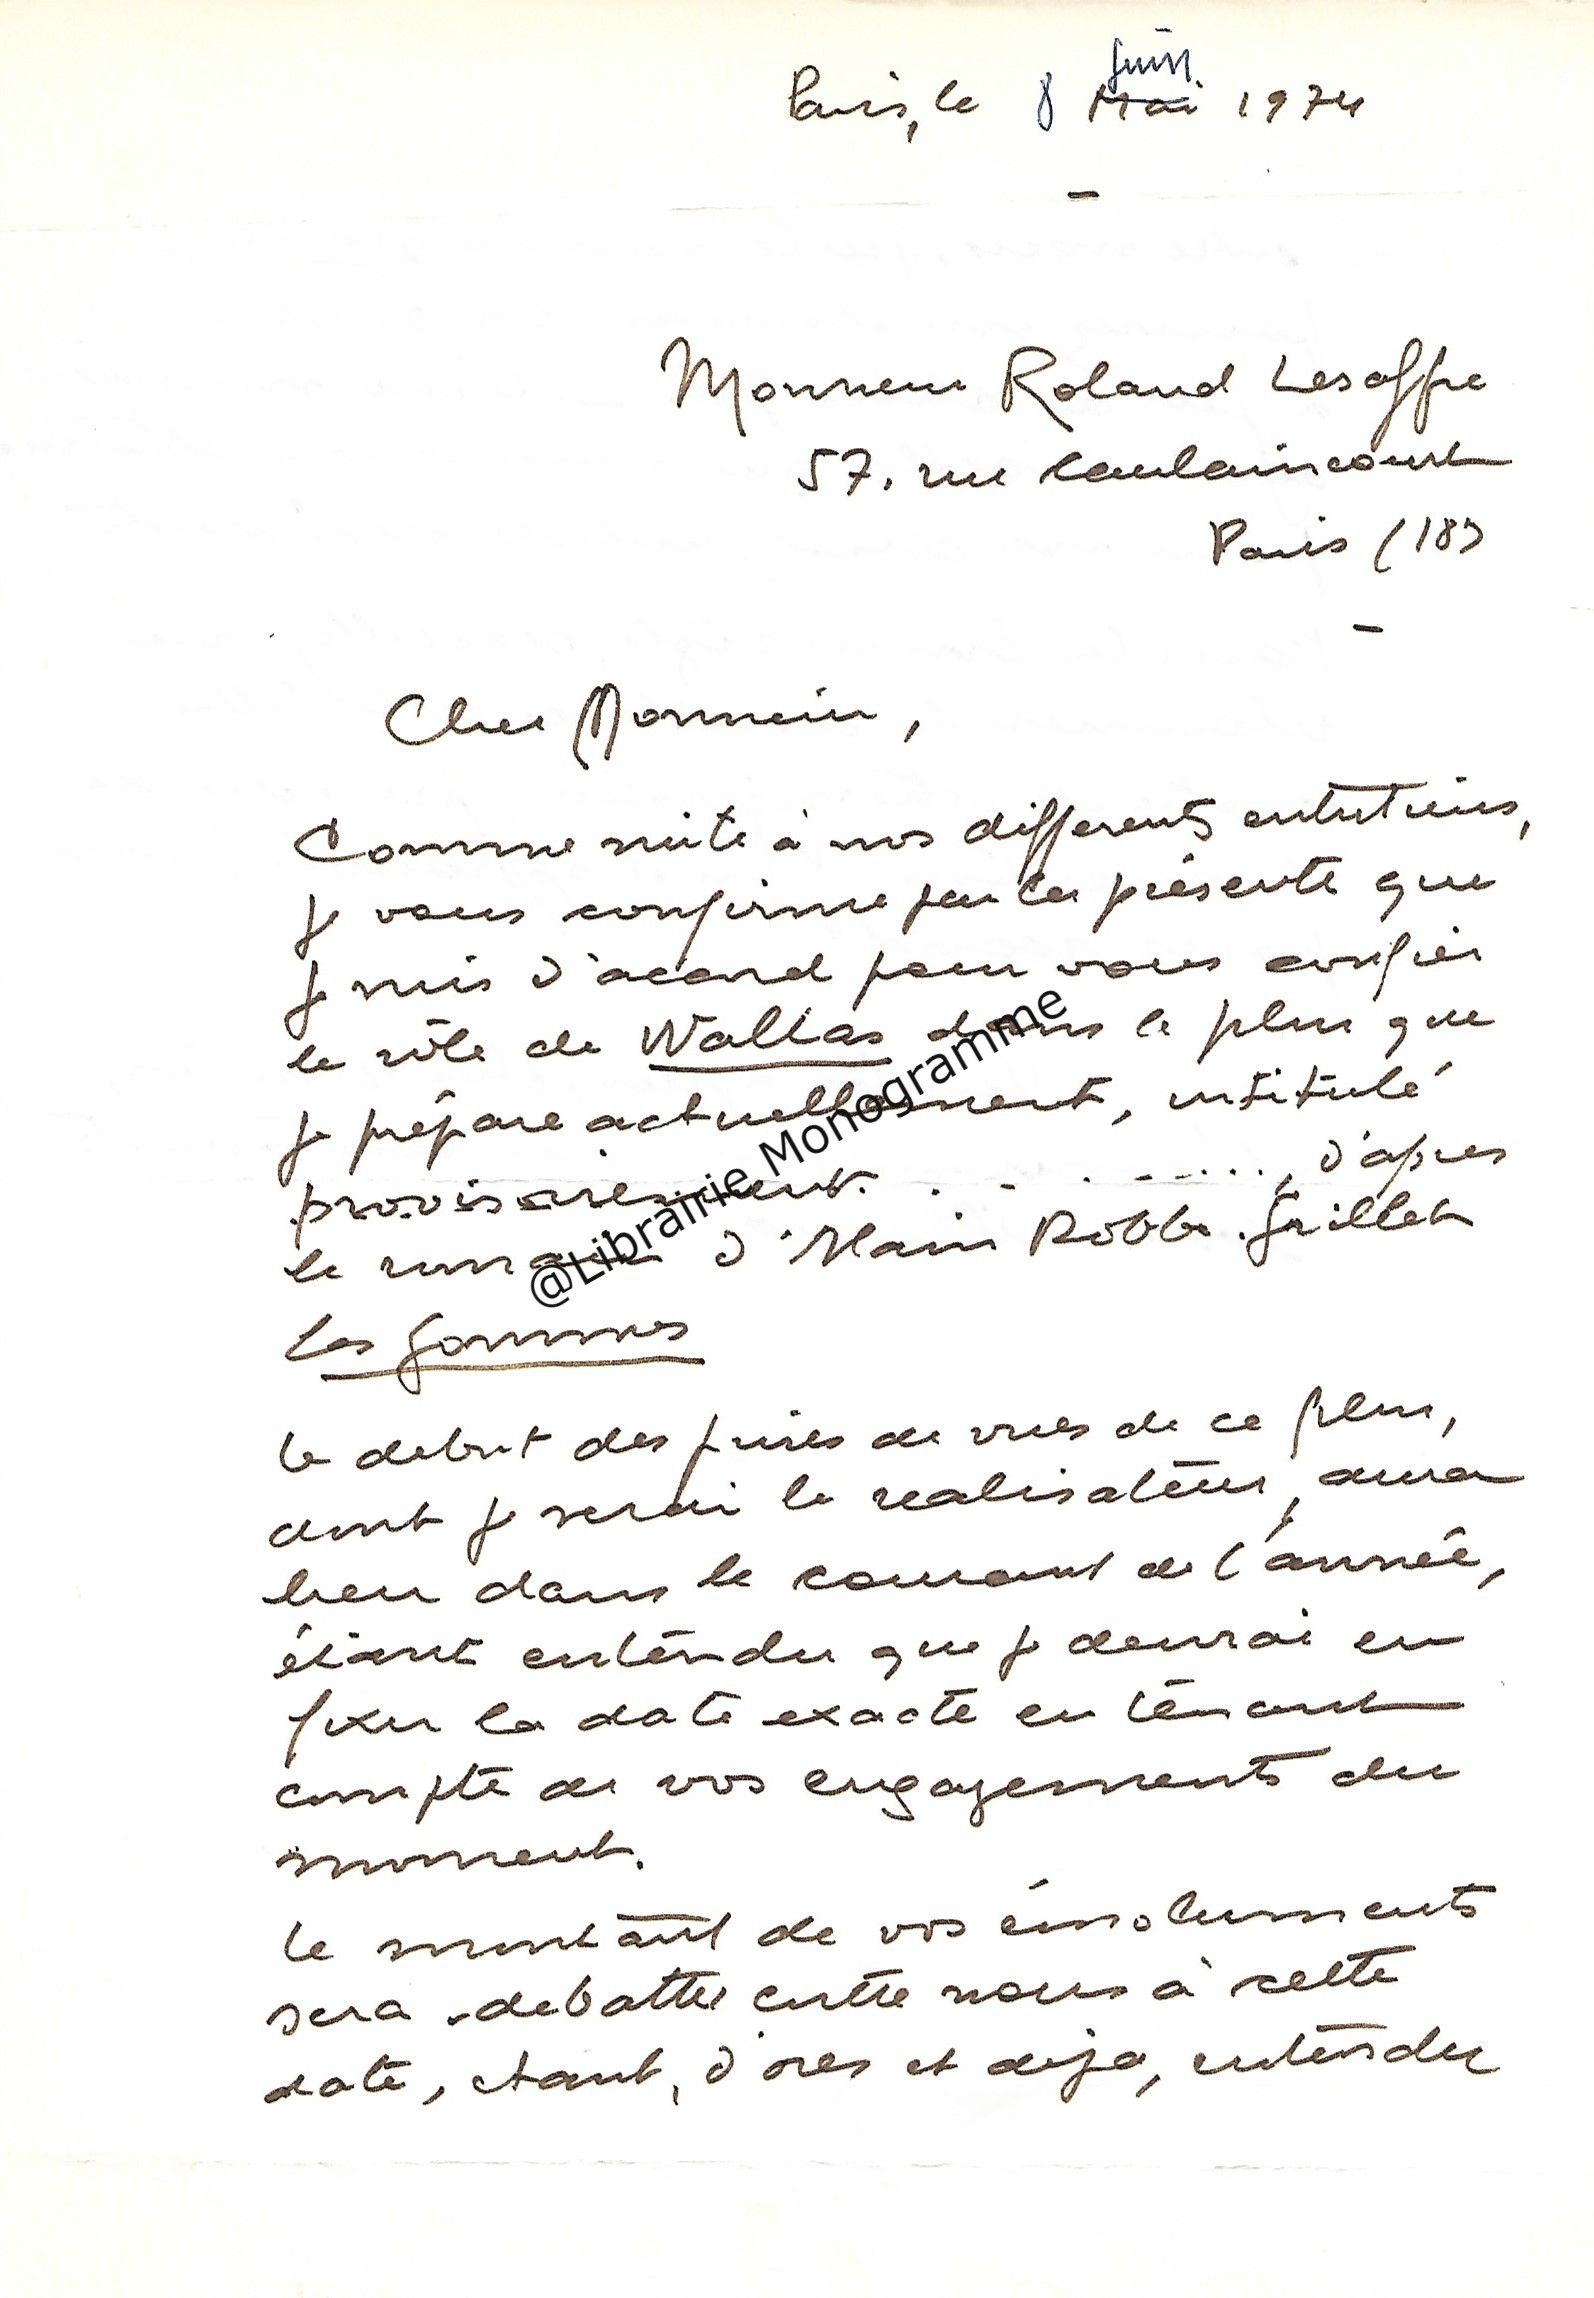 Paris, le 8 juin Mai 1974
Monsieur Roland Lesaffre
57, rue Caulaincourt
Paris (18)
Cher Monsieur,
Comme suite à nos différents entretiens,
je vous confirme par la présente que
je suis d'accord pour vous confier
le rôle de Wallas dans le film que
je prépare actuellement, intitulé
provisoirement . . . . . . . . ., d'après
le roman d'Alain Robbe-Grillet
Les Gommes
Le debut des prises de vues de ce film,
dont je serai le realisateur, aura
lieu dans le courant de l'année,
étant entendu que je devrai en
fixer la date exacte en tenant
compte de vos engagements du
moment.
Le montant de vos émoluments
sera debattu entre nous à cette
date, etant, d'ores et deja, entendu
@Librairie Monogramme